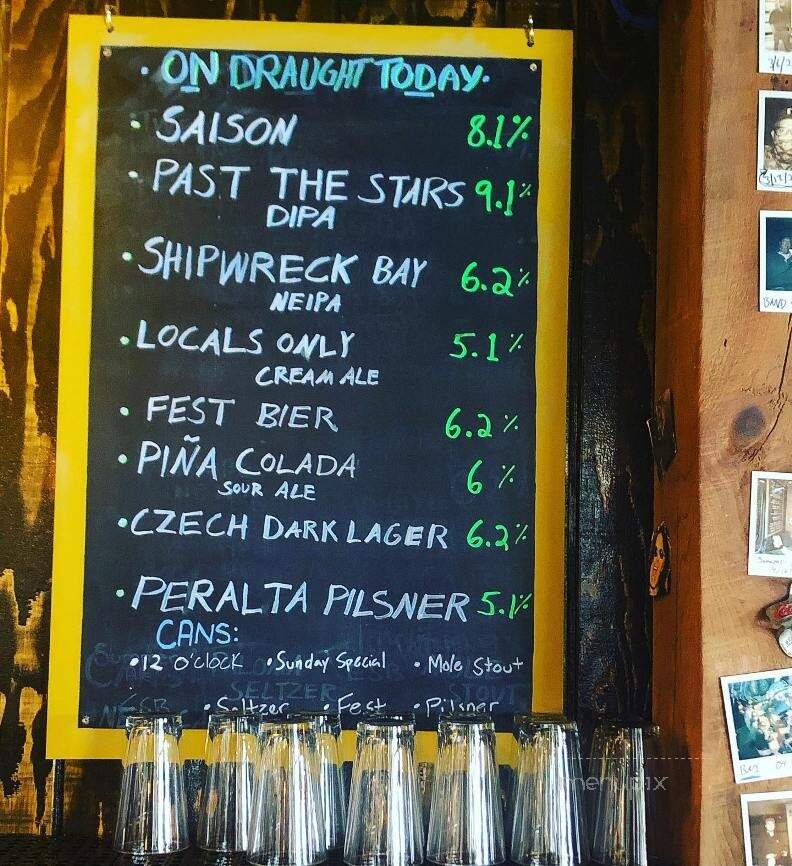 · ON DRAUGHT TODAY ·
· SAISON 8.1%
· PAST THE STARS 9.1%
DIPA
· SHIPWRECK BAY 6.2%
NEIPA
· LOCALS ONLY 5.1%
CREAM ALE
· FEST BIER 6.2%
· PIÑA COLADA 6%
SOUR ALE
· CZECH DARK LAGER 6.2%
· PERALTA PILSNER 5.1%
CANS:
· 12 O'CLOCK · Sunday Special · Mole Stout
SELTZER STOUT
· Seltzer · Fest · Pilsner
BAND
menupix